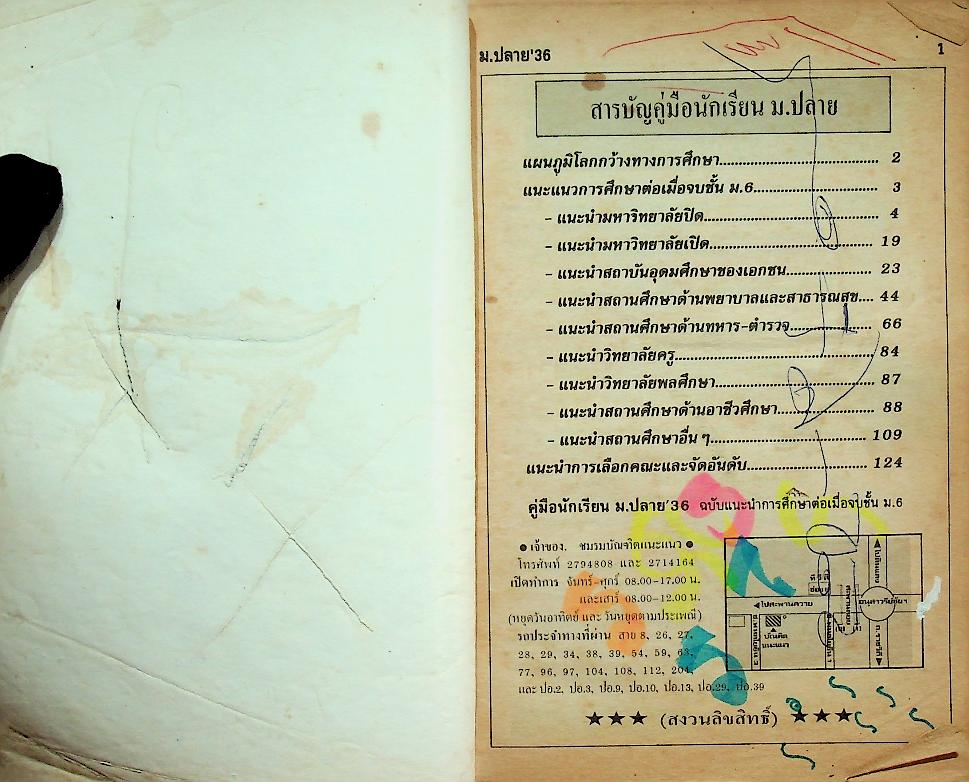 ม.ปลาย'36
1
สารบัญคู่มือนักเรียน ม.ปลาย
แผนภูมิโลกกว้างทางการศึกษา........ 2
แนะแนวการศึกษาต่อเมื่อจบชั้น ม.6........ 3
- แนะนำมหาวิทยาลัยปิด........ 4
- แนะนำมหาวิทยาลัยเปิด........ 19
- แนะนำสถาบันอุดมศึกษาของเอกชน........ 23
- แนะนำสถานศึกษาด้านพยาบาลและสาธารณสุข.... 44
- แนะนำสถานศึกษาด้านทหาร-ตำรวจ........ 66
- แนะนำวิทยาลัยครู........ 84
- แนะนำวิทยาลัยพลศึกษา........ 87
- แนะนำสถานศึกษาด้านอาชีวศึกษา........ 88
- แนะนำสถานศึกษาอื่น ๆ........ 109
แนะนำการเลือกคณะและจัดอันดับ........ 124
คู่มือนักเรียน ม.ปลาย'36 ฉบับแนะนำการศึกษาต่อเมื่อจบชั้น ม.6
● เจ้าของ. ชมรมบัณฑิตแนะแนว ●
โทรศัพท์ 2794808 และ 2714164
เปิดทำการ จันทร์-ศุกร์ 08.00-17.00 น.
และเสาร์ 08.00-12.00 น.
(หยุดวันอาทิตย์ และ วันหยุดตามประเพณี)
รถประจำทางที่ผ่าน สาย 8, 26, 27,
28, 29, 34, 38, 39, 54, 59, 63,
77, 96, 97, 104, 108, 112, 204,
และ ปอ.2, ปอ.3, ปอ.9, ปอ.10, ปอ.13, ปอ.29, ปอ.39
ไปดินแดง
ไปสะพานควาย
อนุสาวรีย์ชัยฯ
บัณฑิต
แนะแนว
ถ.ราชวิถี
★★★ (สงวนลิขสิทธิ์) ★★★